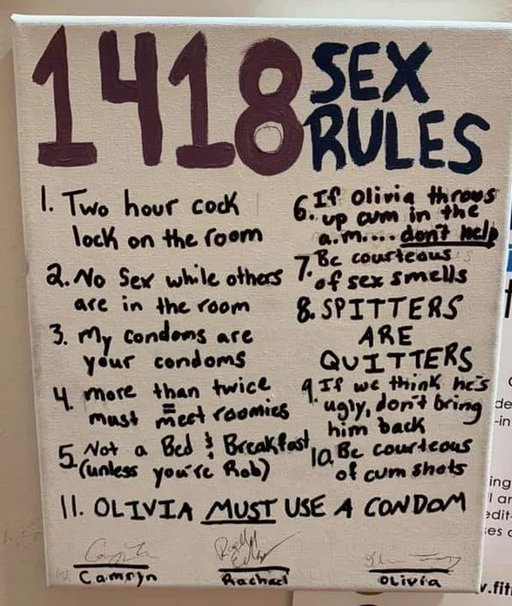 1418 SEX
RULES
1. Two hour cock
lock on the room
2. No Sex while others
are in the room
3. My condoms are
your condoms
4. more than twice
must meet roomies
5. Not a Bed & Breakfast
(unless you're Rob)
6. If Olivia throws
up cum in the
a.m.... don't help
7. Be courteous
of sex smells
8. SPITTERS
ARE
QUITTERS
9. If we think he's
ugly, don't bring
him back
10. Be courteous
of cum shots
11. OLIVIA MUST USE A CONDOM
Camryn
Rachael
Olivia